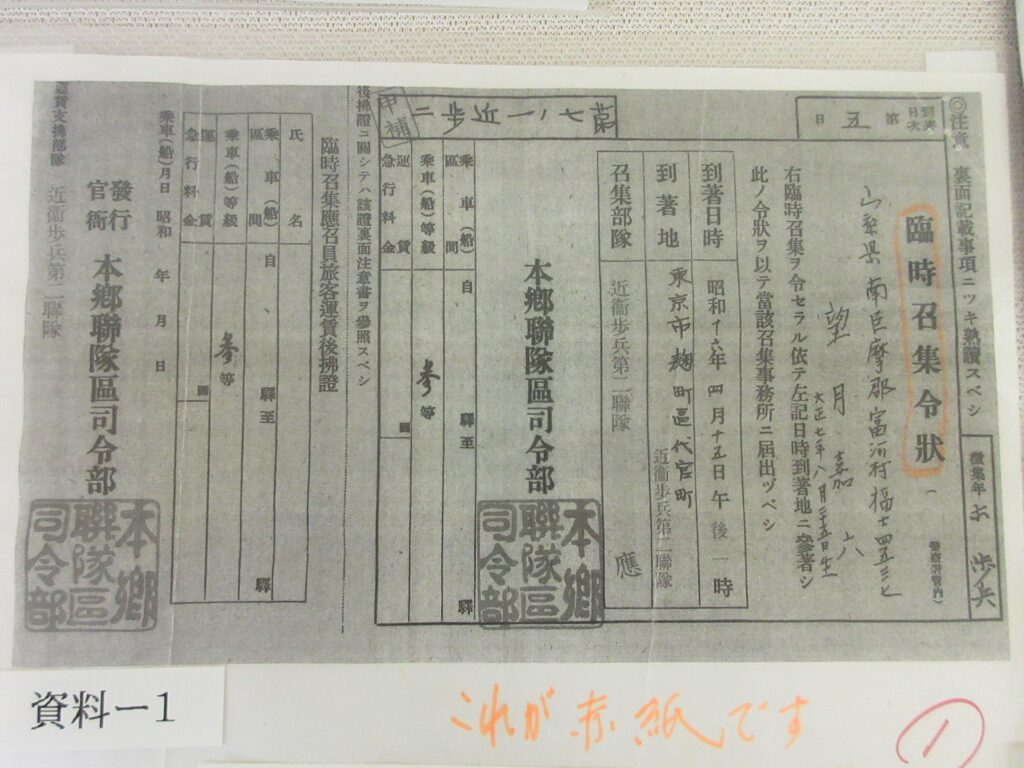 ◎注意 裏面記載事項ニツキ熟讀スベシ
到著日次 第五日
徴集年 六 歩兵
臨時召集令狀
山梨県南巨摩郡富河村福士四五三七
望月嘉六
大正七年八月二十五日生
右臨時召集ヲ令セラル依テ左記日時到著地ニ參著シ
此ノ令狀ヲ以テ當該召集事務所ニ届出ヅベシ
到著日時 昭和十六年四月十五日午後一時
到著地 東京市麹町區代官町 近衞歩兵第二聯隊
召集部隊 近衞歩兵第二聯隊 應
第七八一近歩二
甲補
本鄕聯隊區司令部
本鄕聯隊區司令部
乘車(船)區間 自 驛至 驛
乘車(船)等級 參等
運賃 圓
急行料金
後拂證ニ關シテハ該證裏面注意書ヲ參照スベシ
臨時召集應召員旅客運賃後拂證
氏名
乘車(船)區間 自 驛至 驛
乘車(船)等級 參等
運賃 圓
急行料金
乘車(船)月日 昭和 年 月 日
發行官衙 本鄕聯隊區司令部
本鄕聯隊區司令部
運賃支拂部隊 近衞歩兵第二聯隊
資料－1
これが赤紙です
1